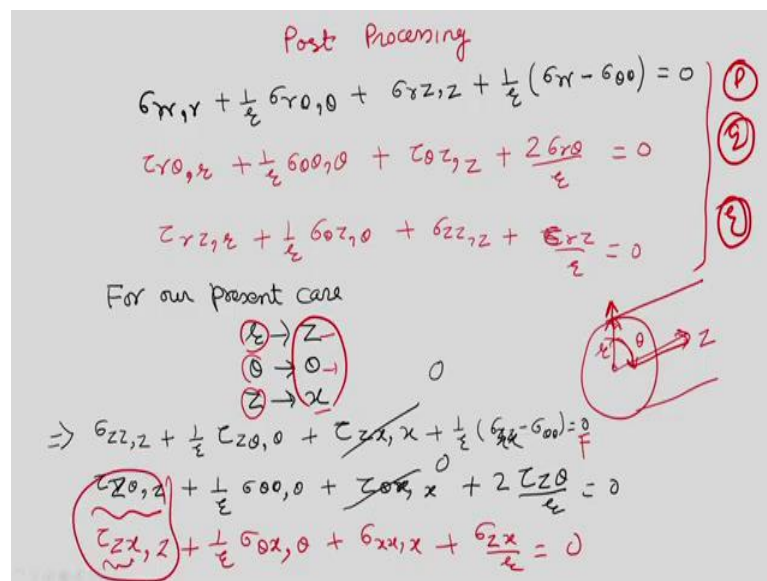 Post Processing
σrr,r + 1/r σrθ,θ + σrz,z + 1/r (σrr - σθθ) = 0
τrθ,r + 1/r σθθ,θ + τθz,z + 2σrθ/r = 0
τrz,r + 1/r σθz,θ + σzz,z + σrz/r = 0
For our present case
r → z
θ → θ
z → x
r θ z
⇒ σzz,z + 1/r τzθ,θ + τzx,x 0 + 1/r (σzz - σθθ) = 0
τzθ,z + 1/r σθθ,θ + τθx,x 0 + 2 τzθ/r = 0
τzx,z + 1/r σθx,θ + σxx,x + σzx/r = 0